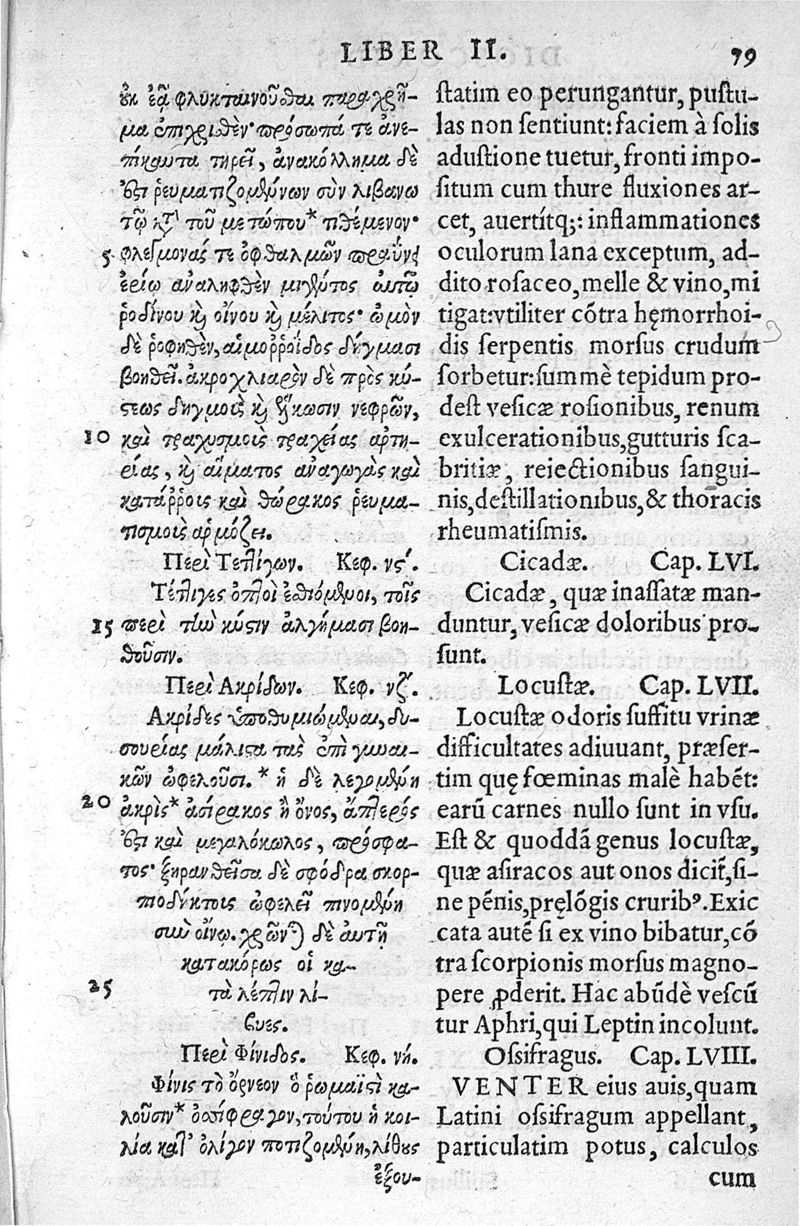 LIBER II. 79
ἐκ ἐᾷ φλυκταινοῦσθαι παραχρῆ-
μα ἐπιχρισθὲν· πρόσωπά τε ἀνε-
πίκαυτα τηρεῖ, ἀνακόλλημα δέ
ἐστι ῥευματιζομένων σὺν λιβάνω
τῷ κτ' τοῦ μετώπου* τιθέμενον·
5 φλεγμονάς τε ὀφθαλμῶν πραΰνει
ἐρίῳ ἀναληφθὲν μιγέντος αὐτῷ
ῥοδίνου καὶ οἴνου καὶ μέλιτος· ὠμὸν
δὲ ῥοφηθὲν, αἱμορροΐδος δήγμασι
βοηθεῖ. ἀκροχλιαρὸν δὲ πρὸς κύ-
στεως δηγμοὺς καὶ ἕλκωσιν νεφρῶν,
10 καὶ τραχυσμοὺς τραχείας ἀρτη-
ρίας, καὶ αἵματος ἀναγωγὰς καὶ
κατάῤῥοις καὶ θώρακος ῥευμα-
τισμοῖς ἁρμόζει.
Περὶ Τεττίγων. Κεφ. νϛʹ.
Τέττιγες ὀπτοὶ ἐσθιόμενοι, τοῖς
15 περὶ τὴν κύστιν ἀλγήμασι βοη-
θοῦσιν.
Περὶ Ακρίδων. Κεφ. νζʹ.
Ακρίδες ὑποθυμιώμεναι, δυ-
σουρίας μάλιστα ταῖς ἐπὶ γυναι-
κῶν ὠφελοῦσι. * ἡ δὲ λεγομένη
20 ἀκρὶς* ἀσίρακος ἢ ὄνος, ἄπτερός
ἐστι καὶ μεγαλόκωλος, πρόσφα-
τος· ξηρανθεῖσα δὲ σφόδρα σκορ-
πιοδήκτοις ὠφελεῖ πινομένη
σὺν οἴνῳ. χρῶνται δὲ αὐτῇ
κατακόρως οἱ κα-
25 τὰ λέπτιν λί-
βυες.
Περὶ Φίνιδος. Κεφ. νή.
Φίνις τὸ ὄρνεον ὃ ῥωμαϊστὶ κα-
λοῦσιν* ὀσσίφραγον, τούτου ἡ κοι-
λία κατ' ὀλίγον ποτιζομένη, λίθους
ἐξου-
statim eo perungantur, pustu-
las non sentiunt: faciem à solis
adustione tuetur, fronti impo-
situm cum thure fluxiones ar-
cet, auertítq;: inflammationes
oculorum lana exceptum, ad-
dito rosaceo, melle & vino, mi
tigat: vtiliter cōtra hęmorrhoi-
dis serpentis morsus crudum
sorbetur: summè tepidum pro-
dest vesicæ rosionibus, renum
exulcerationibus, gutturis sca-
britiæ, reiectionibus sangui-
nis, destillationibus, & thoracis
rheumatismis.
Cicadæ. Cap. LVI.
Cicadæ, quæ inassatæ man-
duntur, vesicæ doloribus pro-
sunt.
Locustæ. Cap. LVII.
Locustæ odoris suffitu vrinæ
difficultates adiuuant, præser-
tim quę fœminas malè habēt:
earū carnes nullo sunt in vsu.
Est & quoddā genus locustæ,
quæ asiracos aut onos dicit͂, si-
ne pēnis, pręlōgis cruribꝰ. Exic
cata autē si ex vino bibatur, cō
tra scorpionis morsus magno-
pere ꝓderit. Hac abūdè vescū
tur Aphri, qui Leptin incolunt.
Ossifragus. Cap. LVIII.
VENTER eius auis, quam
Latini ossifragum appellant,
particulatim potus, calculos
cum